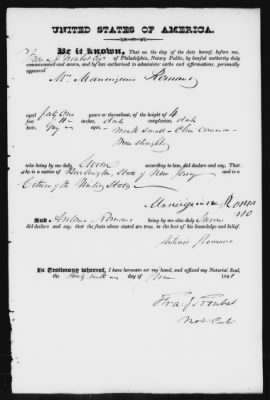 UNITED STATES OF AMERICA.
Be it known, That on the day of the date hereof, before me,
of Philadelphia, Notary Public, by lawful authority duly
commissioned and sworn, and by law authorized to administer oaths and affirmations, personally
appeared
Mr
aged forty one years or thereabout, of the height of 4
feet 11 inches, dark complexion, dark
hair, grey eyes,
Mouth small - Chin Common -
who being by me duly Sworn according to law, did declare and say, That
he is a native of Burlington, State of New Jersey and is a
Citizen of the United States
And Antonio Romano being by me also duly Sworn
did declare and say, that the facts above stated are true, to the best of his knowledge and belief.
Antonio Romano
In Testimony whereof, I have hereunto set my hand, and affixed my Notarial Seal,
the day of June 184
Not. Pub.